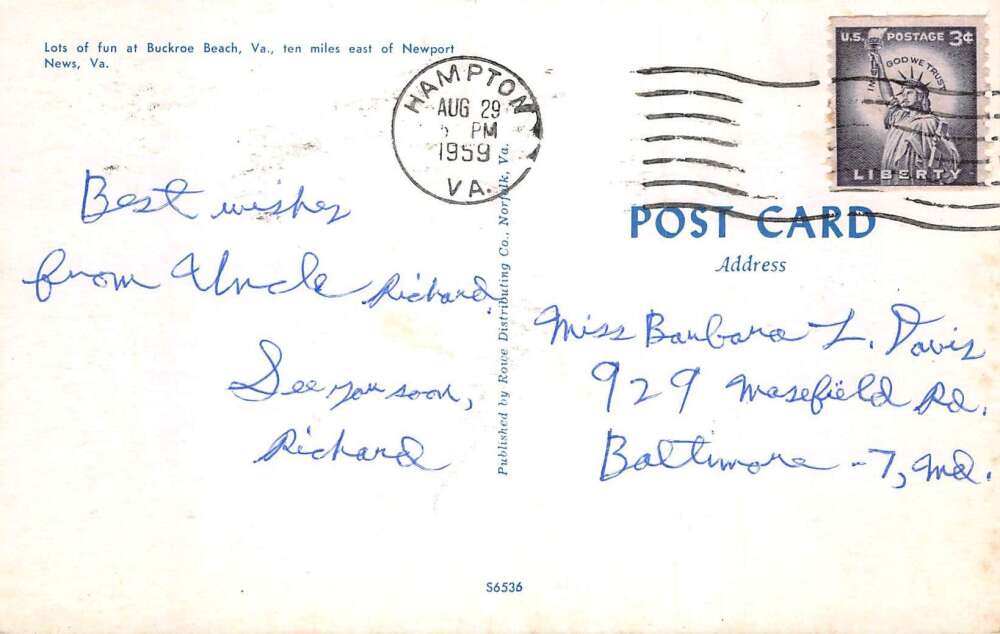 Lots of fun at Buckroe Beach, Va., ten miles east of Newport
News, Va.
HAMPTON
AUG 29
PM
1959
VA.
U.S. POSTAGE 3¢
IN GOD WE TRUST
LIBERTY
POST CARD
Address
Best wishes
from Uncle Richard
See you soon,
Richard
Published by Rowe Distributing Co., Norfolk, Va.
Miss Barbara L. Davis
929 Masefield Rd.
Baltimore -7, Md.
S6536